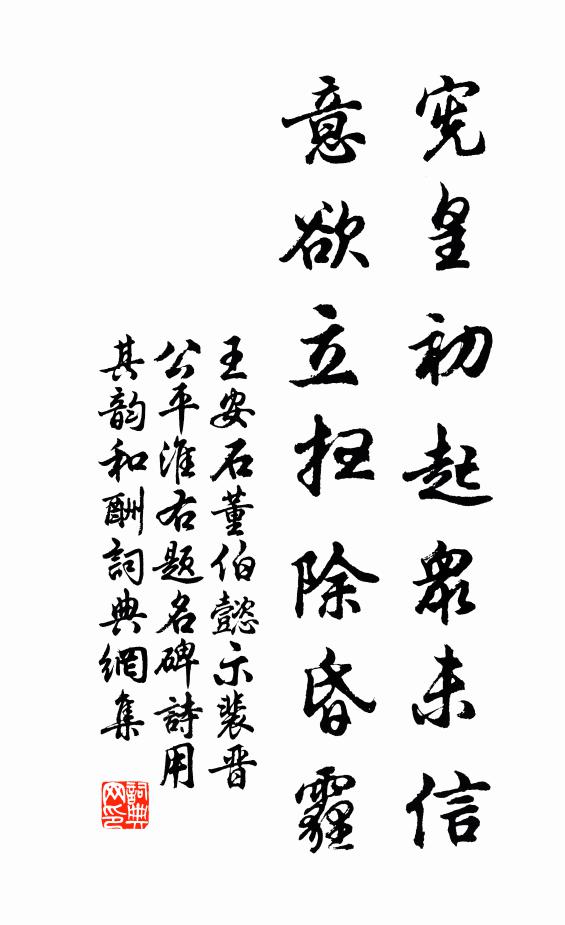 宪皇初起眾未信
意欲立扫除昏霾
王安石董伯懿示裴晋
公平淮右题名碑詩用
其韵和酬詞典網集
詞典
网印